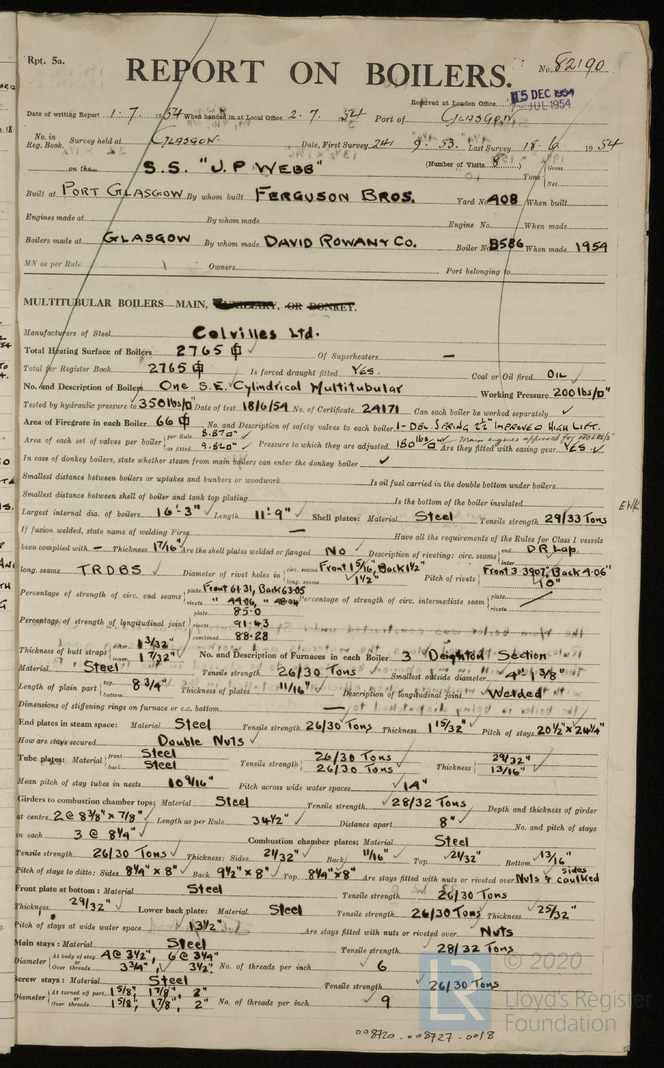 Rpt. 5a.
REPORT ON BOILERS.
No. 82190
Received at London Office 15 DEC 1954
JUL 1954
Date of writing Report 1. 7. 1954 When handed in at Local Office 2. 7. 1954 Port of GLASGOW
No. in Reg. Book. Survey held at GLASGOW. Date, First Survey 24 9. 53. Last Survey 18. 6 1954
on the S.S. "J. P. WEBB" (Number of Visits 8) Tons Gross Net
Built at PORT GLASGOW By whom built FERGUSON BROS. Yard No. 408 When built
Engines made at By whom made Engine No. When made
Boilers made at GLASGOW By whom made DAVID ROWAN & CO. Boiler No. B586 When made 1954
MN as per Rule Owners Port belonging to
MULTITUBULAR BOILERS—MAIN, AUXILIARY, OR DONKEY.
Manufacturers of Steel Colvilles Ltd.
Total Heating Surface of Boilers 2765 Of Superheaters —
Total for Register Book 2765 Is forced draught fitted YES. Coal or Oil fired OIL
No. and Description of Boilers One S.E. Cylindrical Multitubular Working Pressure 200 lbs/□"
Tested by hydraulic pressure to 350 lbs/□" Date of test 18/6/54 No. of Certificate 24171 Can each boiler be worked separately ✓
Area of Firegrate in each Boiler 66 No. and Description of safety valves to each boiler 1 - DBL. SPRING 2½" IMPROVED HIGH LIFT.
Area of each set of valves per boiler per Rule 8.87□" as fitted 9.820□" Pressure to which they are adjusted 180 lbs/□" Main engines approved for 180 lbs/□" Are they fitted with easing gear YES. ✓
In case of donkey boilers, state whether steam from main boilers can enter the donkey boiler ✓
Smallest distance between boilers or uptakes and bunkers or woodwork Is oil fuel carried in the double bottom under boilers
Smallest distance between shell of boiler and tank top plating Is the bottom of the boiler insulated
Largest internal dia. of boilers 16'-3" ✓ Length 11'-9" ✓ Shell plates: Material Steel Tensile strength 29/33 Tons
If fusion welded, state name of welding Firm — Have all the requirements of the Rules for Class I vessels
been complied with — Thickness 1 7/16" Are the shell plates welded or flanged No ✓ Description of riveting: circ. seams end D R Lap. inter.
long. seams T.R.D.B.S ✓ Diameter of rivet holes in circ. seams Front 1 5/16, Back 1½" long. seams 1½" Pitch of rivets Front 3.3907, Back 4.06" 10"
Percentage of strength of circ. end seams plate Front 61.31, Back 63.05 rivets " 44.06, " 48.04 Percentage of strength of circ. intermediate seam plate rivets
Percentage of strength of longitudinal joint plate 85.0 rivets 91.43 combined 88.28
Thickness of butt straps outer 1 3/32" inner 1 7/32" No. and Description of Furnaces in each Boiler 3 Deighton Section
Material Steel Tensile strength 26/30 Tons Smallest outside diameter 4' 1 3/8"
Length of plain part top bottom 8 3/4" Thickness of plates 11/16" Description of longitudinal joint Welded
Dimensions of stiffening rings on furnace or c.c. bottom —
End plates in steam space: Material Steel Tensile strength 26/30 Tons Thickness 1 15/32" Pitch of stays 20½" × 24¼"
How are stays secured Double Nuts ✓
Tube plates: Material front Steel back Steel Tensile strength 26/30 Tons 26/30 Tons Thickness 29/32" 13/16"
Mean pitch of stay tubes in nests 10 9/16" Pitch across wide water spaces 14"
Girders to combustion chamber tops: Material Steel Tensile strength 28/32 Tons Depth and thickness of girder
at centre 2 @ 8 3/8" × 7/8" Length as per Rule 34½" Distance apart 8" No. and pitch of stays
in each 3 @ 8¼" Combustion chamber plates: Material Steel
Tensile strength 26/30 Tons Thickness: Sides 21/32" Back 11/16" Top 21/32" Bottom 13/16"
Pitch of stays to ditto: Sides 8¼" × 8" Back 9½" × 8" Top 8¼" × 8" Are stays fitted with nuts or riveted over Nuts & sides caulked
Front plate at bottom: Material Steel Tensile strength 26/30 Tons
Thickness 29/32" Lower back plate: Material Steel Tensile strength 26/30 Tons Thickness 25/32"
Pitch of stays at wide water space 13½" Are stays fitted with nuts or riveted over Nuts
Main stays: Material Steel Tensile strength 28/32 Tons
Diameter At body of stay, or Over threads 4 @ 3½", 6 @ 3¼" 3¾", 3½" No. of threads per inch 6
Screw stays: Material Steel Tensile strength 26/30 Tons
Diameter At turned off part, or Over threads 1 5/8", 1 7/8", 2" 1 5/8", 1 7/8", 2" No. of threads per inch 9
© 2020
Lloyd's Register
Foundation
008720-008727-0018